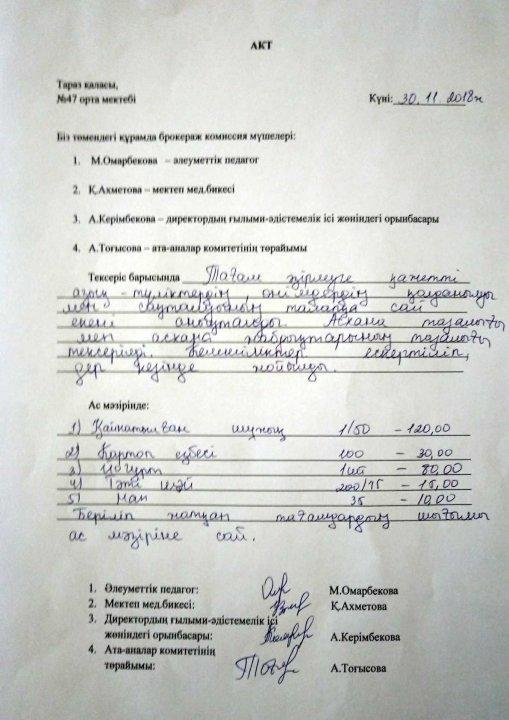 АКТ
Тараз қаласы,
№47 орта мектебі
Күні: 30.11.2018ж
Біз төмендегі құрамда брокераж комиссия мүшелері:
1. М.Омарбекова – әлеуметтік педагог
2. Қ.Ахметова – мектеп мед.бикесі
3. А.Керімбекова – директордың ғылыми-әдістемелік ісі жөніндегі орынбасары
4. А.Тоғысова – ата-аналар комитетінің төрайымы
Тексеріс барысында Тағам әзірлеуге қажетті
азық-түліктердің, өнімдердің қолданылуы
мен сақталуының талапқа сай
екені анықталды. Асхана тазалығы
мен асхана жабдықтарының тазалығы
тексерілді. Кемшіліктер ескертіліп,
дер кезінде жойылды.
Ас мәзірінде:
1) Қайнатылған шұжық 1/50 – 120,00
2) Картоп езбесі 100 – 30,00
3) Йогурт 1шт – 80,00
4) Тәтті шәй 200/15 – 15,00
5) Нан 35 – 10,00
Беріліп жатқан тағамдардың шығымы
ас мәзіріне сай.
1. Әлеуметтік педагог: М.Омарбекова
2. Мектеп мед.бикесі: Қ.Ахметова
3. Директордың ғылыми-әдістемелік ісі
жөніндегі орынбасары: А.Керімбекова
4. Ата-аналар комитетінің
төрайымы: А.Тоғысова